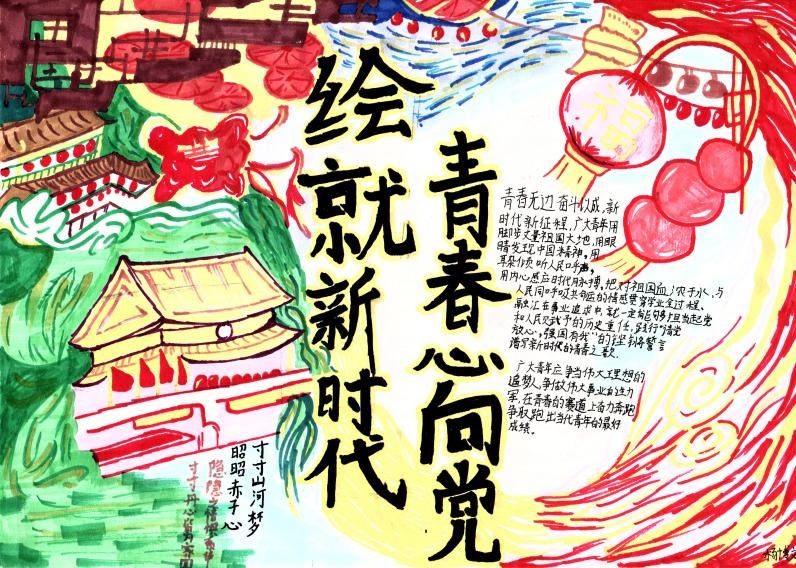 青春心向党
绘就新时代
福
青春无边奋斗以成,新
时代新征程,广大青年用
脚步丈量祖国大地,用眼
睛发现中国精神,用
耳朵倾听人民呼声,
用内心感应时代脉搏,把对祖国血浓于水、与
人民同呼吸共命运的情感贯穿学业全过程、
融汇在事业追求中,就一定能够担当起党
和人民赋予的历史重任,践行“请党
放心,强国有我”的铿锵誓言
谱写新时代的青春之歌
广大青年应争当伟大理想的
追梦人,争做伟大事业的生力
军,在青春的赛道上奋力奔跑
争取跑出当代青年的最好
成绩。
寸寸山河梦
昭昭赤子心
隐隐
寸寸丹心
杨